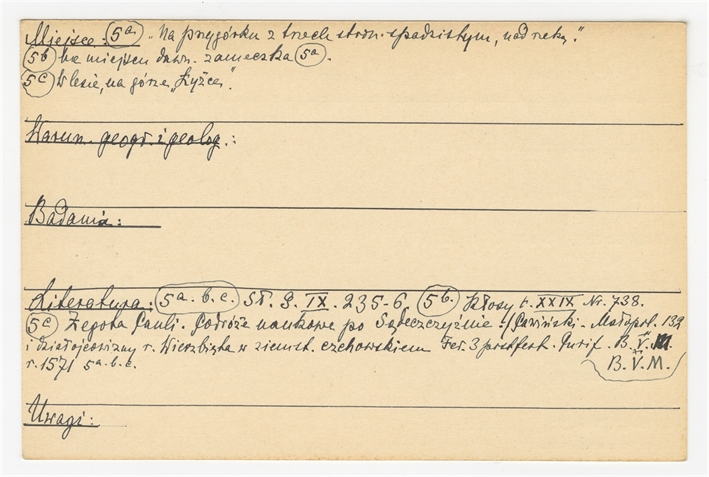 Miejsce: 5a. „Na przygórku z trzech stron spadzistym, nad rzeką."
5b na miejscu dawn. zameczka 5a.
5c W lesie, na górze „Łyżce".
Warun. geogr. i geolog.:
Badania:
Literatura: 5a. b. c. Sł. G. IX. 235-6. 5b. Kłosy t. XXIX Nr. 738.
5c Żegota Pauli. Podróże naukowe po Sądeczyźnie :/ Pawiński. Małop. 132
i działo r. Wierzbięta w ziemi czchowskiem Fer. 3 post fest. Purif. B. V. M.
r. 1571 5a. b. c. B. V. M.
Uwagi: